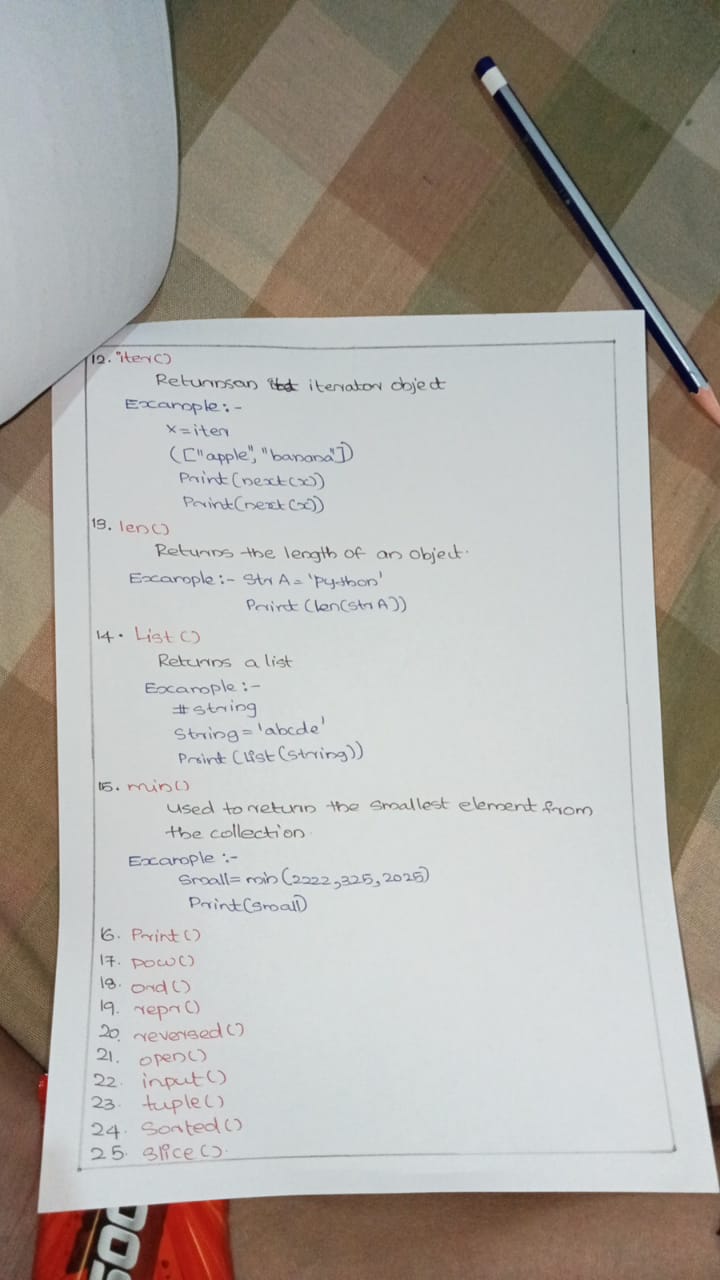 12. iter()
Returnsan iterator object
Example:-
x=iter
(["apple", "banana"])
Print(next(x))
Print(next(x))
13. len()
Returns the length of an object.
Example:- Str A = 'python'
Print (len(str A))
14. List()
Returns a list
Example:-
#string
String = 'abcde'
Print (List (string))
15. min()
used to return the smallest element from
the collection.
Example :-
Small= min (2222,325,2025)
Print(small)
16. Print()
17. pow()
18. ord()
19. repr()
20. reversed()
21. open()
22. input()
23. tuple()
24. Sorted()
25. slice().
500